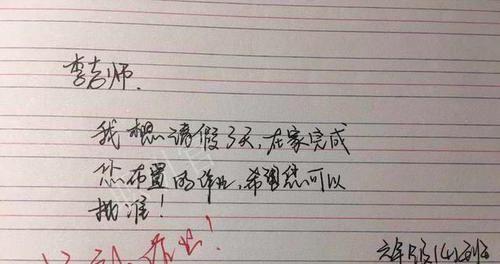 李老师.
我想请假3天,在家完成
您布置的作业,希望您可以
批准!
六年级(4)班